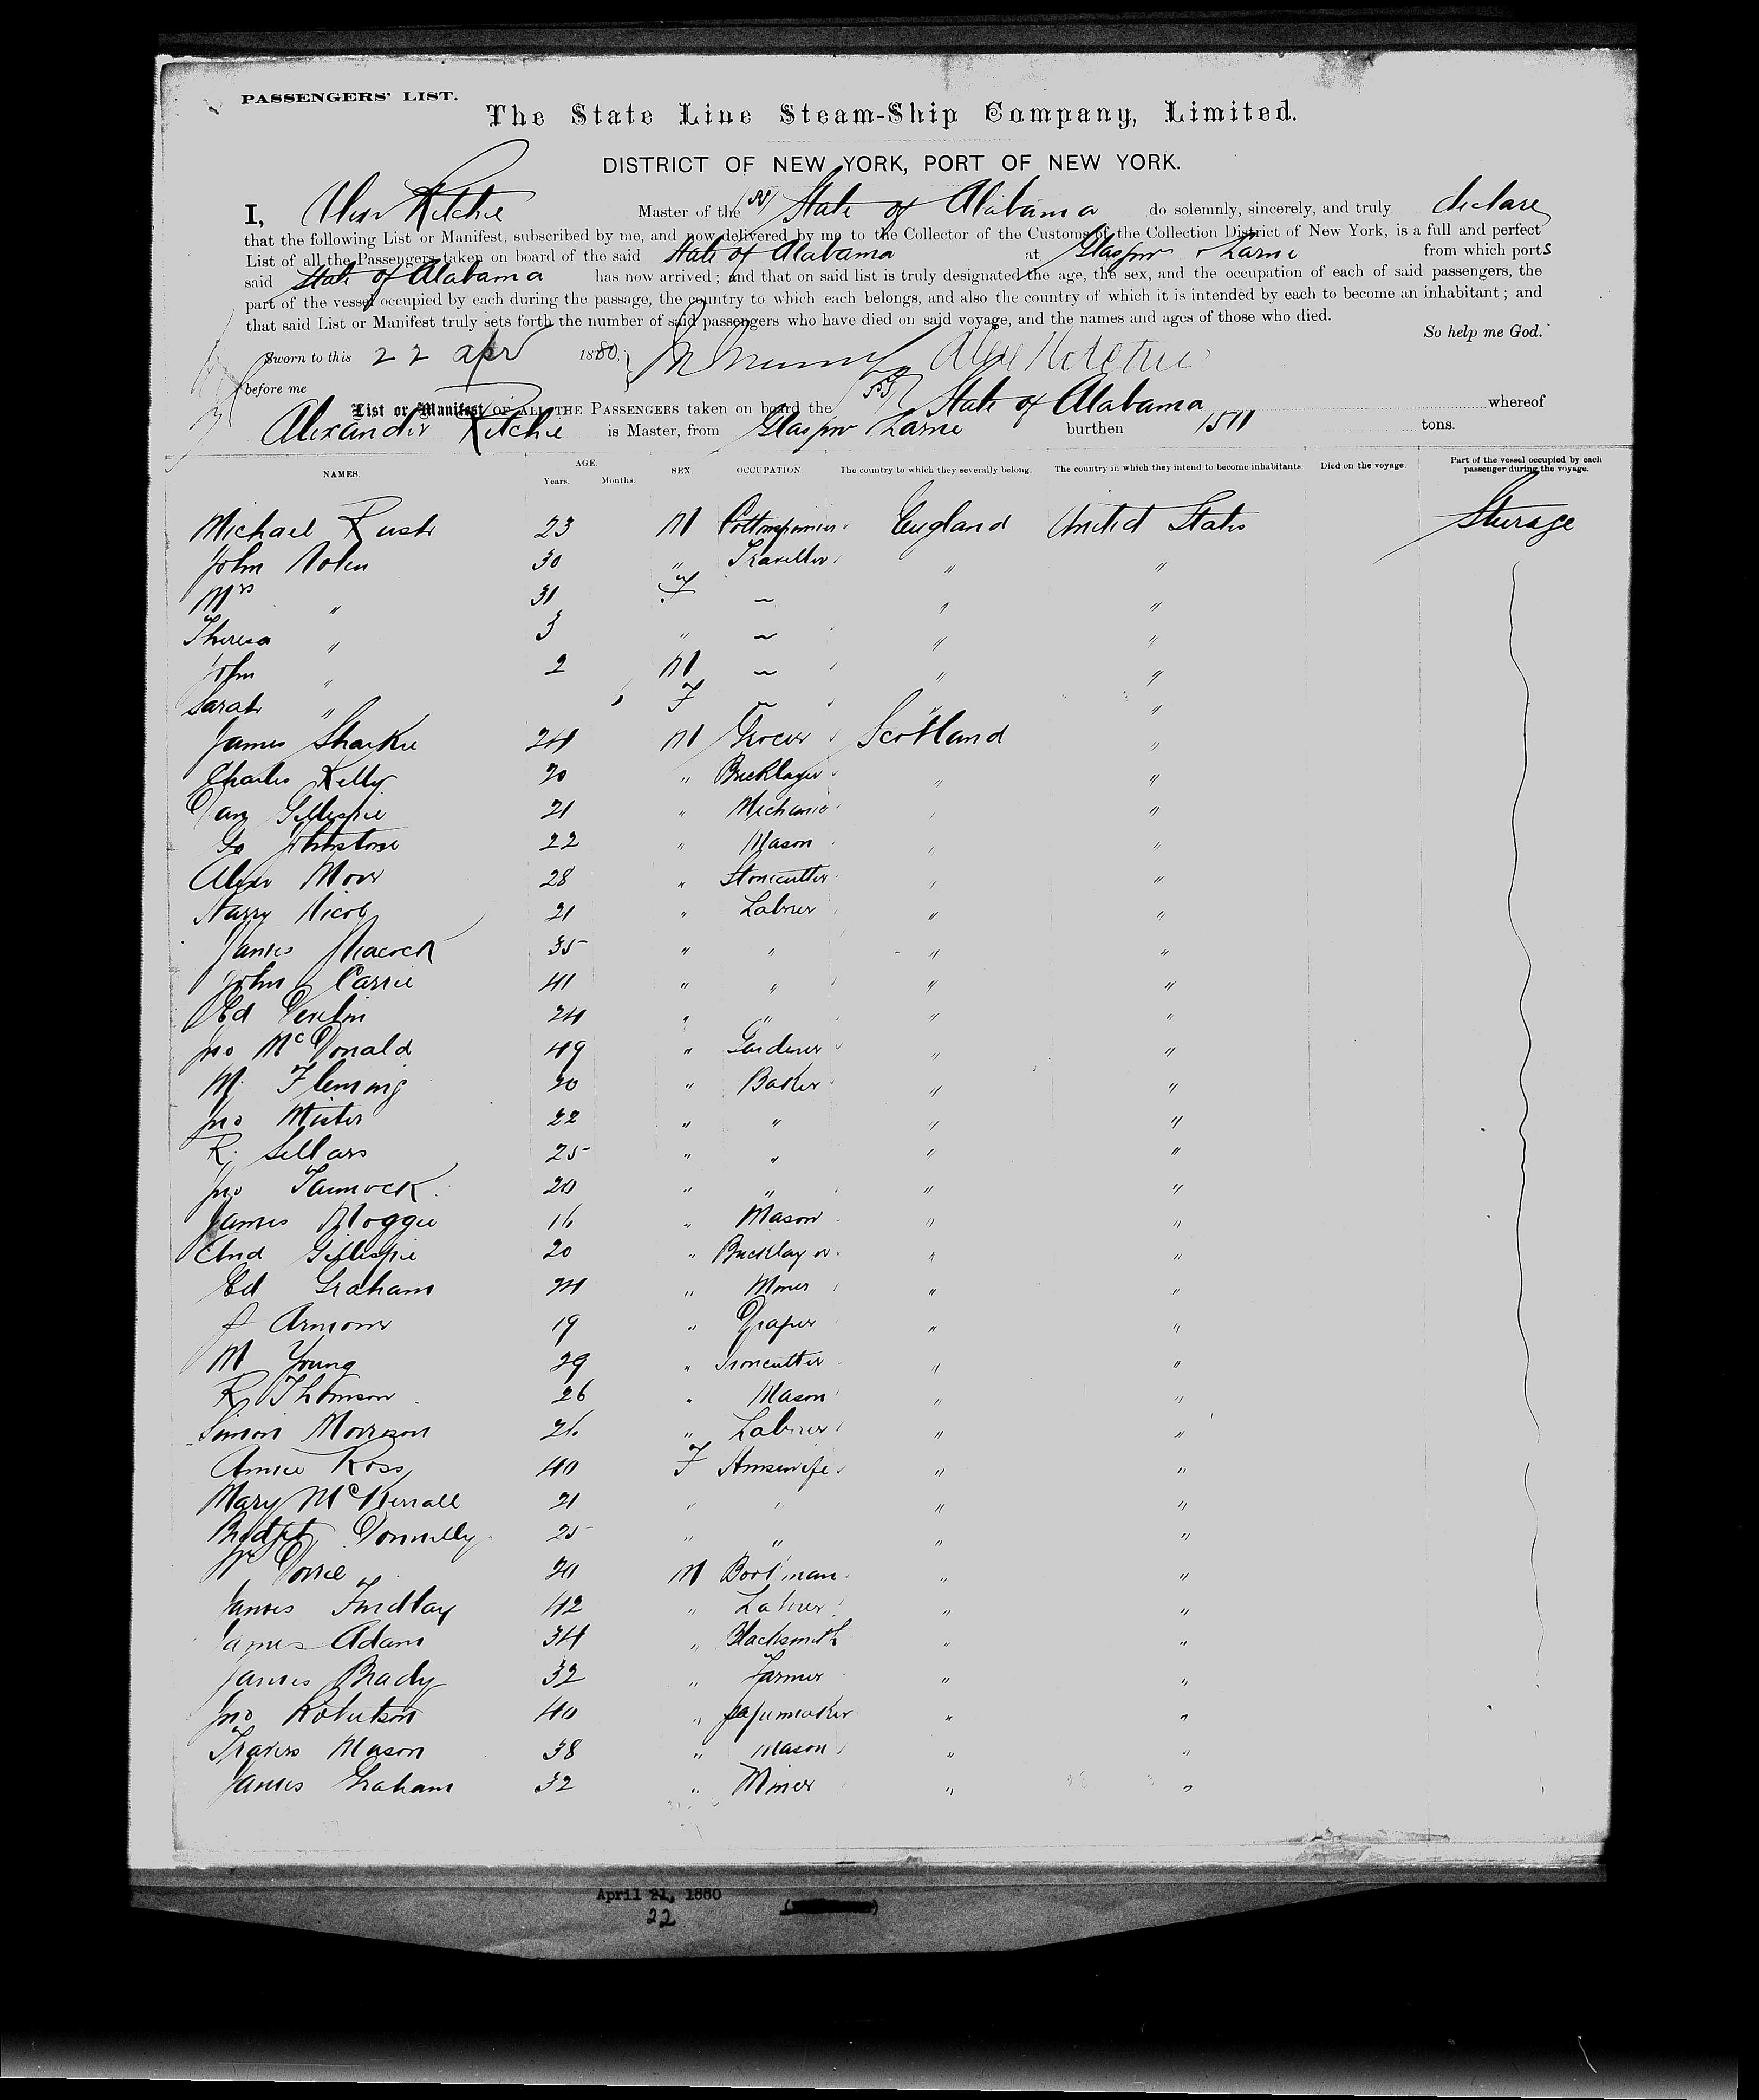 PASSENGERS' LIST.
The State Line Steam-Ship Company, Limited.
DISTRICT OF NEW YORK, PORT OF NEW YORK.
I, Alexr Ritchie Master of the SS State of Alabama do solemnly, sincerely, and truly declare
that the following List or Manifest, subscribed by me, and now delivered by me to the Collector of the Customs of the Collection District of New York, is a full and perfect
List of all the Passengers taken on board of the said State of Alabama at Glasgow & Larne from which ports
said State of Alabama has now arrived; and that on said list is truly designated the age, the sex, and the occupation of each of said passengers, the
part of the vessel occupied by each during the passage, the country to which each belongs, and also the country of which it is intended by each to become an inhabitant; and
that said List or Manifest truly sets forth the number of said passengers who have died on said voyage, and the names and ages of those who died.
So help me God.
Sworn to this 22 Apr 1880, Alex Ritchie
before me
List or Manifest OF ALL THE PASSENGERS taken on board the SS State of Alabama whereof
Alexander Ritchie is Master, from Glasgow Larne burthen 1511 tons.
NAMES. AGE. Years. Months. SEX. OCCUPATION The country to which they severally belong. The country in which they intend to become inhabitants. Died on the voyage. Part of the vessel occupied by each passenger during the voyage.
Michael Rush 23 M Cottonspinner England United States Steerage
John Nolen 30 " Traveller " "
Mrs " 31 F ~ " "
Theresa " 3 " ~ " "
John " 2 M ~ " "
Sarah " F ~ " "
James Sharkie 24 M Grocer Scotland "
Charles Kelly 20 " Bricklayer " "
Dan Gillespie 21 " Mechanic " "
Go Johnstone 22 " Mason " "
Alexr Moor 28 " Stonecutter " "
Harry Nicol 21 " Labrer " "
James Peacock 35 " " " "
John Carrie 41 " " " "
Ed Devlin 24 " " " "
Jno McDonald 49 " Gardener " "
M. Fleming 20 " Baker " "
Jno Mister 22 " " " "
R. Sellars 25 " " " "
Jno Tannock 20 " " " "
James Moggie 16 " Mason " "
And Gillespie 20 " Bricklayer " "
Ed Graham 24 " Miner " "
J Armour 19 " Draper " "
M Young 29 " " "
R Thomson 26 " Mason " "
Simon Morrison 26 " Labrer " "
Annie Ross 40 F Housewife " "
Mary McKerrall 21 " " " "
Bridget Donnelly 25 " " " "
20 M " "
James Findlay 42 " Labrer " "
James Adam 34 " Blacksmith " "
James Brady 32 " Farmer " "
Jno Robertson 40 " papermaker " "
Travers Mason 38 " Mason " "
James Graham 32 " Miner " "
April 21, 1880
22